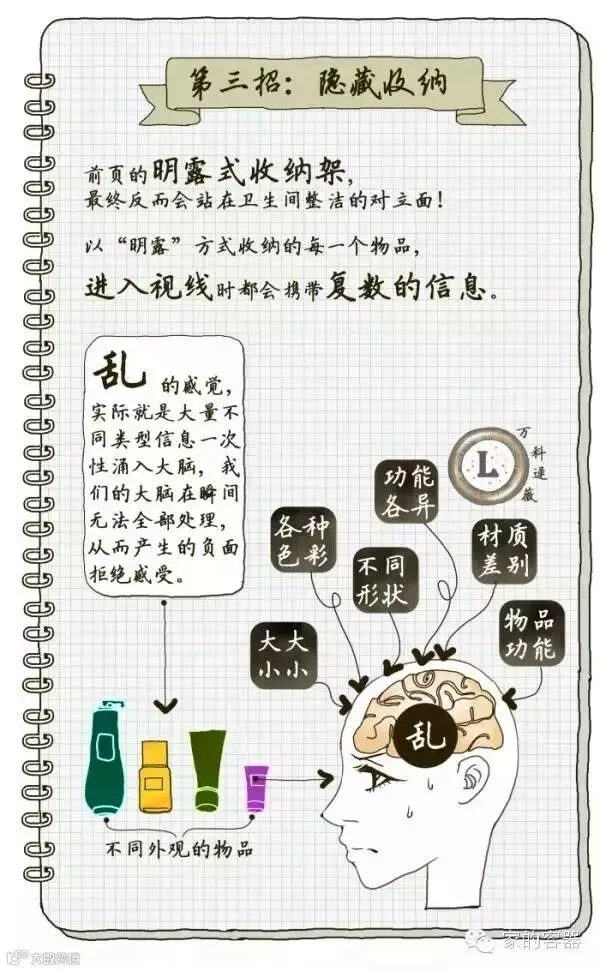 第三招：隐藏收纳
前页的明露式收纳架，
最终反而会站在卫生间整洁的对立面！
以“明露”方式收纳的每一个物品，
进入视线时都会携带复数的信息。
乱的感觉，
实际就是大量不
同类型信息一次
性涌入大脑，我
们的大脑在瞬间
无法全部处理，
从而产生的负面
拒绝感受。
万科逯薇
L
功能
各异
各种
色彩
不同
形状
材质
差别
物品
功能
大大
小小
乱
不同外观的物品
家的容器
大数跨境